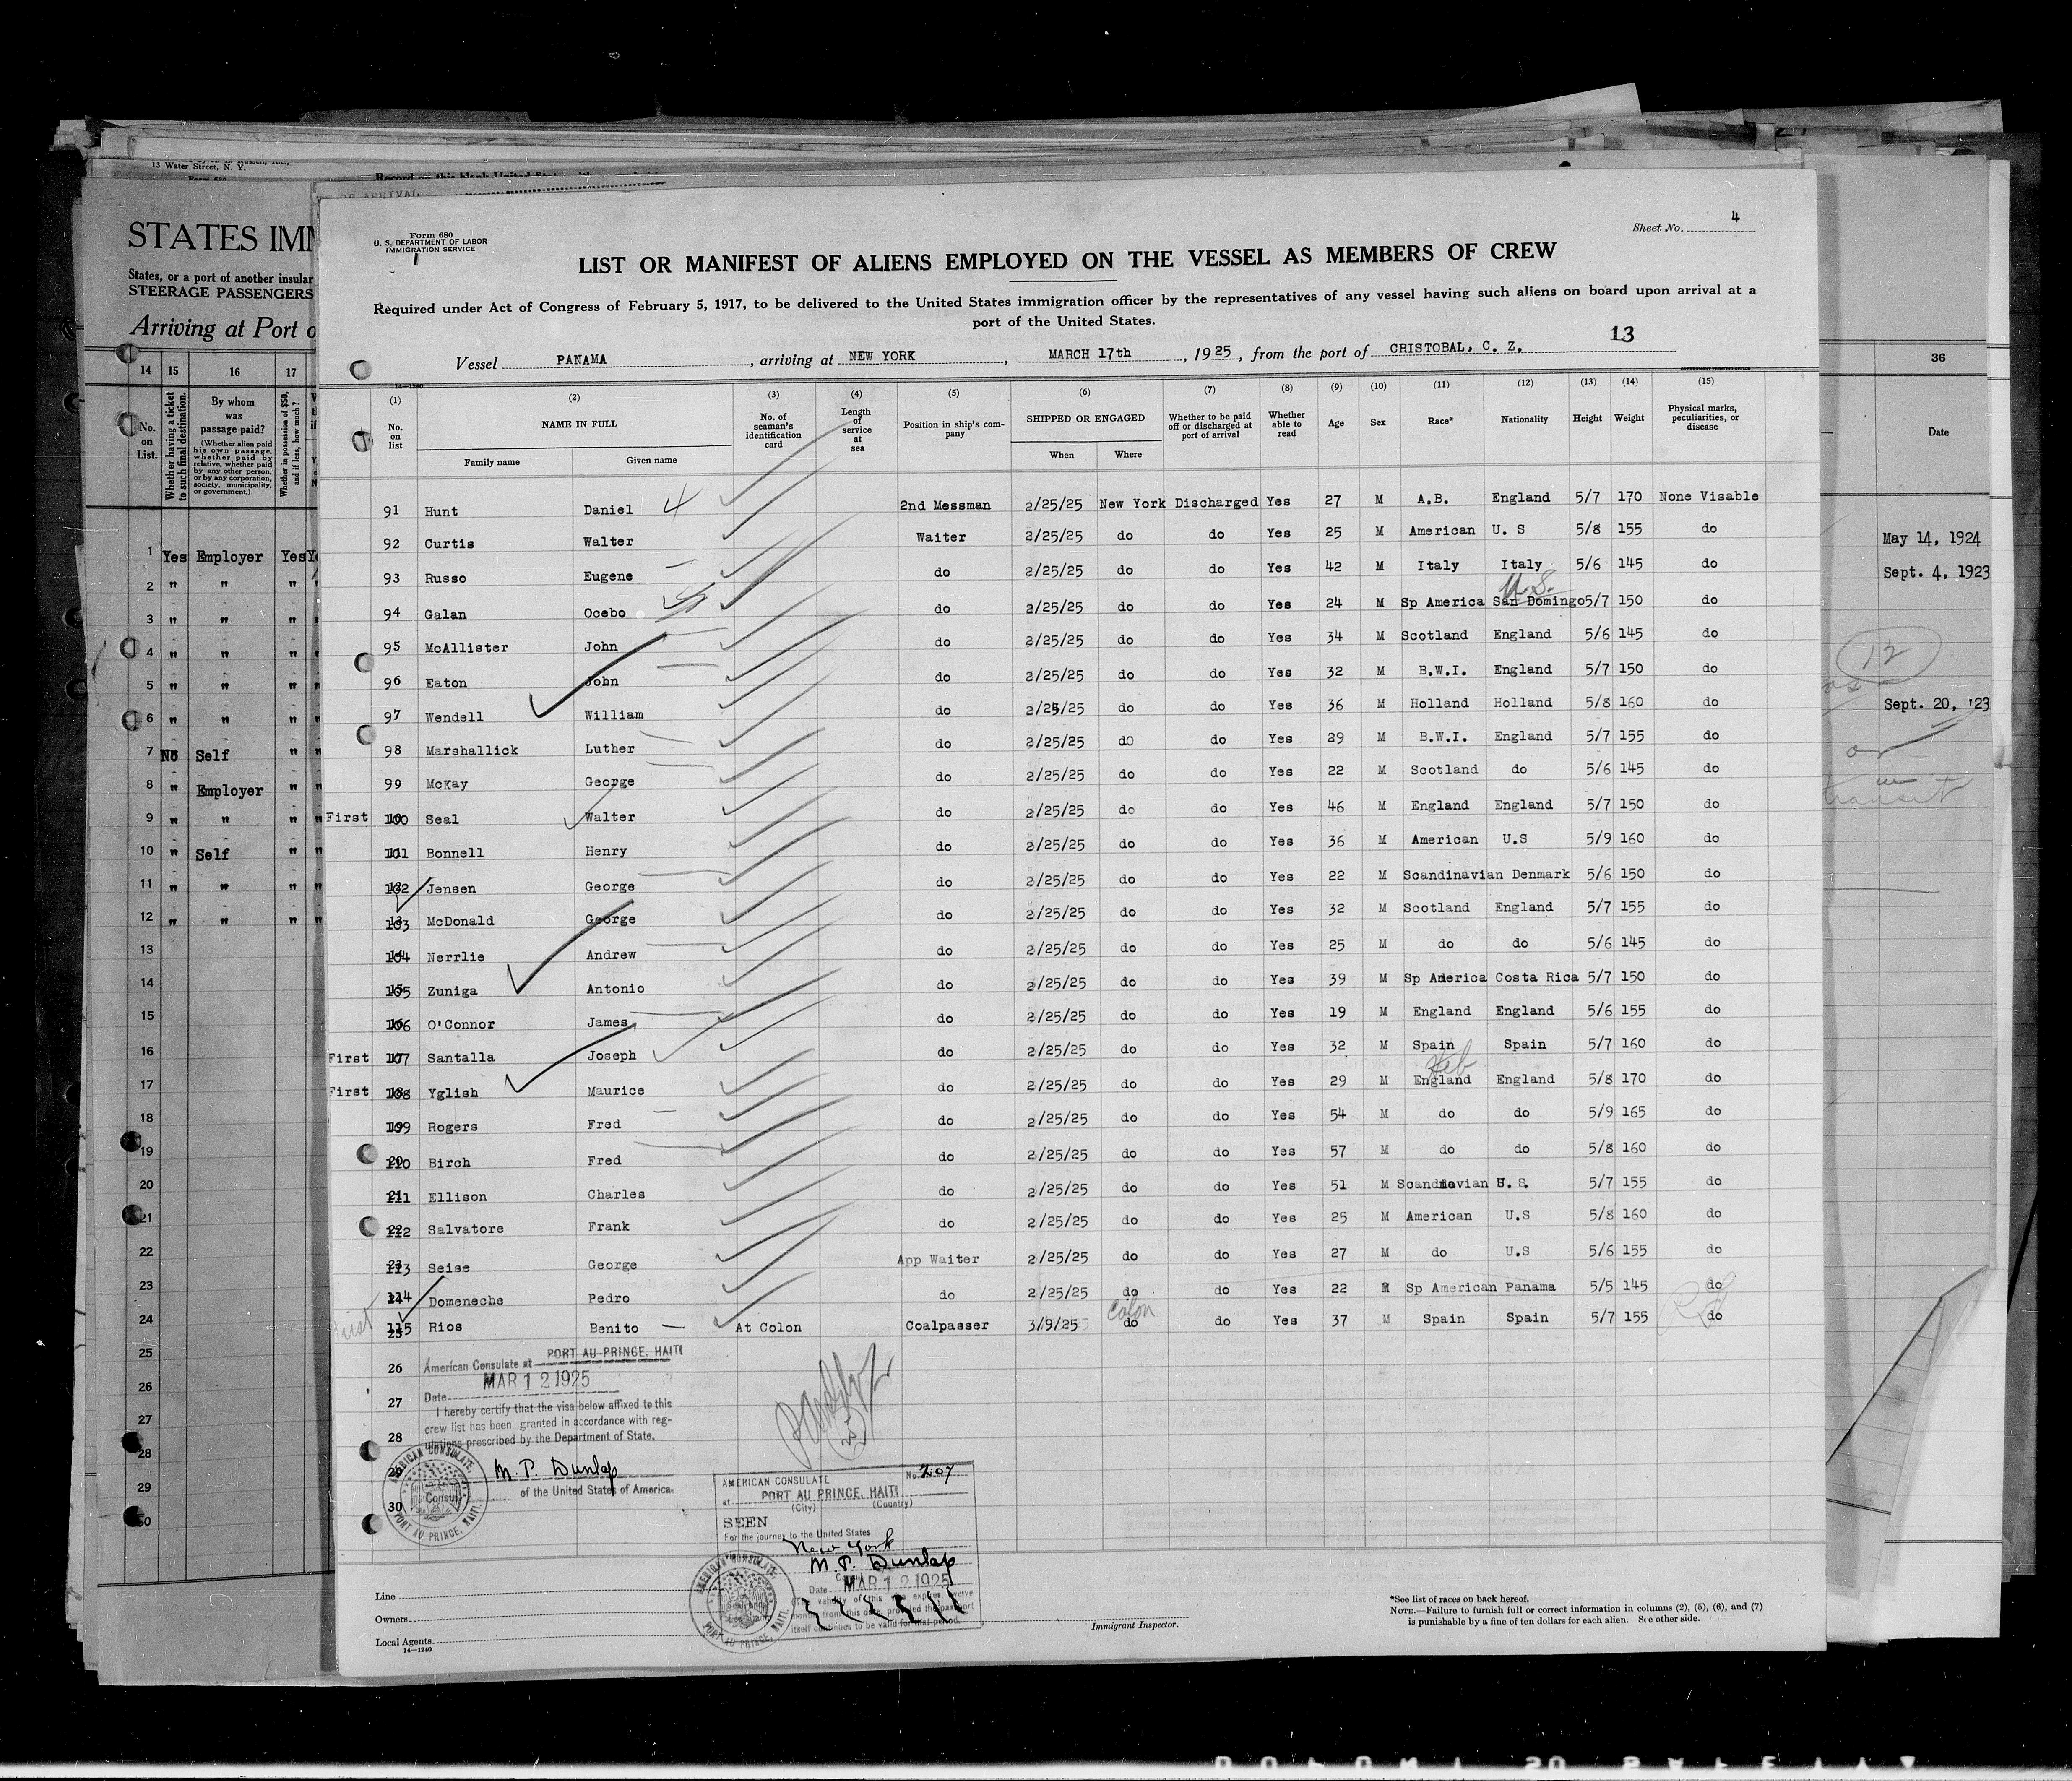 13 Water Street, N. Y.
Form 680
Record on this blank United States
OF ARRIVAL
STATES IMM
States, or a port of another insular
STEERAGE PASSENGERS
Arriving at Port o
14 15 16 17
No. on List.
Whether having a ticket to such final destination.
By whom was passage paid?
(Whether alien paid his own passage, whether paid by relative, whether paid by any other person, or by any corporation, society, municipality, or government.)
Whether in possession of $50, and if less, how much?
1 Yes Employer Yes
2 " " "
3 " " "
4 " " "
5 " " "
6 " " "
7 No Self "
8 " Employer "
9 " " "
10 " Self "
11 " " "
12 " " "
13
14
15
16
17
18
19
20
21
22
23
24
25
26
27
28
29
30
Form 680
U. S. DEPARTMENT OF LABOR
IMMIGRATION SERVICE
Sheet No. 4
LIST OR MANIFEST OF ALIENS EMPLOYED ON THE VESSEL AS MEMBERS OF CREW
Required under Act of Congress of February 5, 1917, to be delivered to the United States immigration officer by the representatives of any vessel having such aliens on board upon arrival at a
port of the United States.
13
Vessel PANAMA, arriving at NEW YORK, MARCH 17th, 1925, from the port of CRISTOBAL, C. Z.
14—1240
(1) (2) (3) (4) (5) (6) (7) (8) (9) (10) (11) (12) (13) (14) (15)
No. on list
NAME IN FULL
Family name Given name
No. of seaman's identification card
Length of service at sea
Position in ship's company
SHIPPED OR ENGAGED
When Where
Whether to be paid off or discharged at port of arrival
Whether able to read
Age
Sex
Race*
Nationality
Height
Weight
Physical marks, peculiarities, or disease
91 Hunt Daniel 4 2nd Messman 2/25/25 New York Discharged Yes 27 M A.B. England 5/7 170 None Visable
92 Curtis Walter Waiter 2/25/25 do do Yes 25 M American U. S 5/8 155 do
93 Russo Eugene do 2/25/25 do do Yes 42 M Italy Italy 5/6 145 do
U.S.
94 Galan Ocebo do 2/25/25 do do Yes 24 M Sp America San Domingo 5/7 150 do
95 McAllister John do 2/25/25 do do Yes 34 M Scotland England 5/6 145 do
96 Eaton John do 2/25/25 do do Yes 32 M B.W.I. England 5/7 150 do
97 Wendell William do 2/25/25 do do Yes 36 M Holland Holland 5/8 160 do
98 Marshallick Luther do 2/25/25 do do Yes 29 M B.W.I. England 5/7 155 do
99 McKay George do 2/25/25 do do Yes 22 M Scotland do 5/6 145 do
First 100 Seal Walter do 2/25/25 do do Yes 46 M England England 5/7 150 do
101 Bonnell Henry do 2/25/25 do do Yes 36 M American U.S 5/9 160 do
102 Jensen George do 2/25/25 do do Yes 22 M Scandinavian Denmark 5/6 150 do
103 McDonald George do 2/25/25 do do Yes 32 M Scotland England 5/7 155 do
104 Nerrlie Andrew do 2/25/25 do do Yes 25 M do do 5/6 145 do
105 Zuniga Antonio do 2/25/25 do do Yes 39 M Sp America Costa Rica 5/7 150 do
106 O'Connor James do 2/25/25 do do Yes 19 M England England 5/6 155 do
First 107 Santalla Joseph do 2/25/25 do do Yes 32 M Spain Spain 5/7 160 do
Heb
First 108 Yglish Maurice do 2/25/25 do do Yes 29 M England England 5/8 170 do
109 Rogers Fred do 2/25/25 do do Yes 54 M do do 5/9 165 do
110 Birch Fred do 2/25/25 do do Yes 57 M do do 5/8 160 do
111 Ellison Charles do 2/25/25 do do Yes 51 M Scandnavian U. S. 5/7 155 do
112 Salvatore Frank do 2/25/25 do do Yes 25 M American U.S 5/8 160 do
113 Seise George App Waiter 2/25/25 do do Yes 27 M do U.S 5/6 155 do
114 Domeneche Pedro do 2/25/25 do do Yes 22 M Sp American Panama 5/5 145 do
Colon
First 115 Rios Benito At Colon Coalpasser 3/9/25 do do Yes 37 M Spain Spain 5/7 155 do
26
27
28
29
30
American Consulate at PORT AU PRINCE, HAITI
Date MAR 12 1925
I hereby certify that the visa below affixed to this
crew list has been granted in accordance with reg-
ulations prescribed by the Department of State.
M. P. Dunlap
Consul of the United States of America.
AMERICAN CONSULATE. PORT AU PRINCE, HAITI.
AMERICAN CONSULATE No. 207
at PORT AU PRINCE, HAITI
(City) (Country)
SEEN
For the journey to the United States
New York
M. P. Dunlap
Date MAR 12 1925
The validity of this visa expires twelve
months from this date, provided the passport
itself continues to be valid for that period.
AMERICAN CONSULATE. PORT AU PRINCE, HAITI.
Line
Owners
Local Agents
14—1240
Immigrant Inspector.
*See list of races on back hereof.
NOTE.—Failure to furnish full or correct information in columns (2), (5), (6), and (7)
is punishable by a fine of ten dollars for each alien. See other side.
36
Date
May 14, 1924
Sept. 4, 1923
12
Sept. 20, '23
or
transit